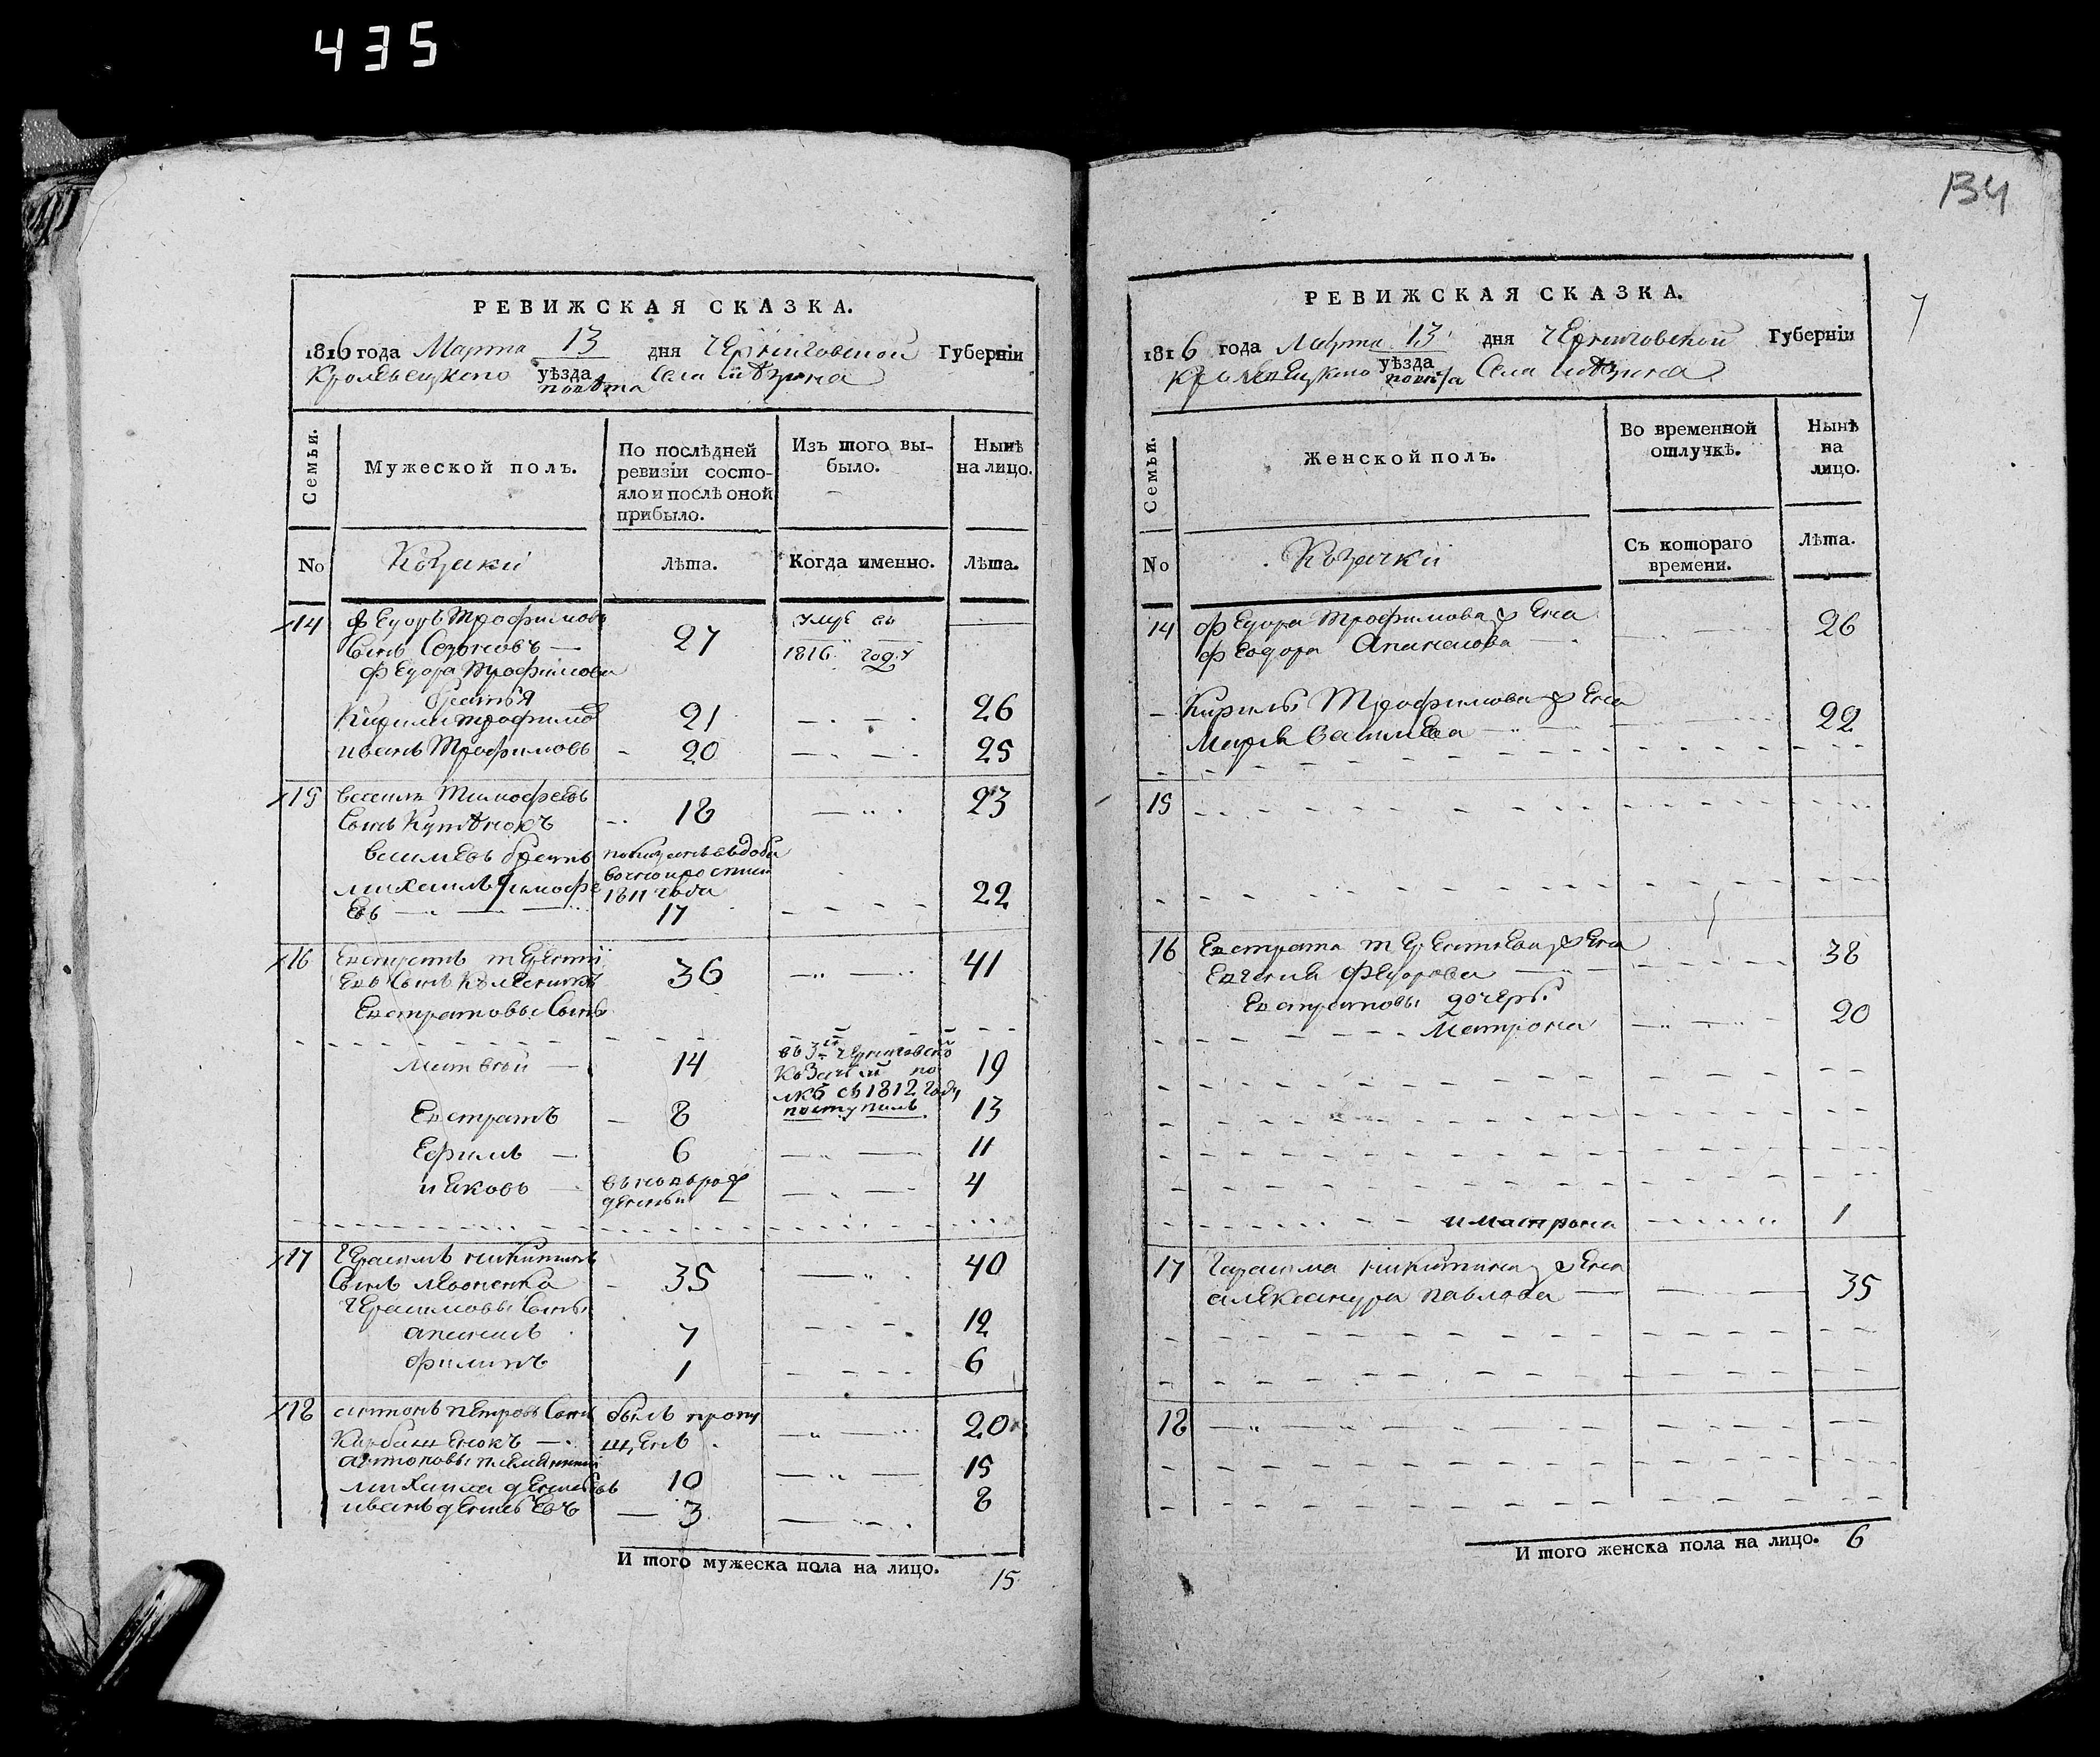 435
134
7
РЕВИЖСКАЯ СКАЗКА.
1816 года Марта 13 дня Черниговской Губерніи
Кролевецкого уѣзда Села
повѣта
Семьи.
Мужеской полъ.
По послѣдней ревизіи состо-
яло и послѣ оной
прибыло.
Изъ того вы-
было.
Нынѣ
на лицо.
No
Козаки
Лѣта.
Когда именно.
Лѣта.
14 Федоръ Трофимовъ
сынъ Созоновъ — 27 умре въ
1816 году
Федора Трофимова
братья
Кирила трофимов 21 26
иванъ Трофимовъ 20 25
15 василь Тимофеевъ
сынъ 18 23
василевъ братъ
михаилъ Тимофе
евъ 1811 года 17 22
16 Евстратъ
евъ сынъ 36 41
Евстратовы сыны
Матвей 14 въ 3й Черниговско
козачий по
лкъ съ 1812 году
поступилъ 19
Евстратъ 8 13
Ефимъ 6 11
и Яковъ 4
17 Герасимъ никитинъ
сынъ леоненка 35 40
Герасимовы сыны
апанасъ 7 12
филипъ 1 6
18 антонъ петровъ сынъ былъ пропу
щенъ 20
антоновы племянники
михаила 10 15
иванъ 3 8
И того мужеска пола на лицо. 15
РЕВИЖСКАЯ СКАЗКА.
1816 года Марта 13 дня Черниговской Губерніи
Кролевецкого уѣзда Села
повѣта
Семьи.
Женской полъ.
Во временной
отлучкѣ.
Нынѣ
на
лицо.
No
Козачки
Съ котораго
времени.
Лѣта.
14 Федора Трофимова жена
феодора Апанасова 26
Кирилы Трофимова жена
Марья василева 22
15
16 Евстрата жена
Евгения Федорова 38
Евстратовы дочери
Матрона 20
и матрона 1
17 Гарасима никитина жена
александра павлова 35
18
И того женска пола на лицо. 6